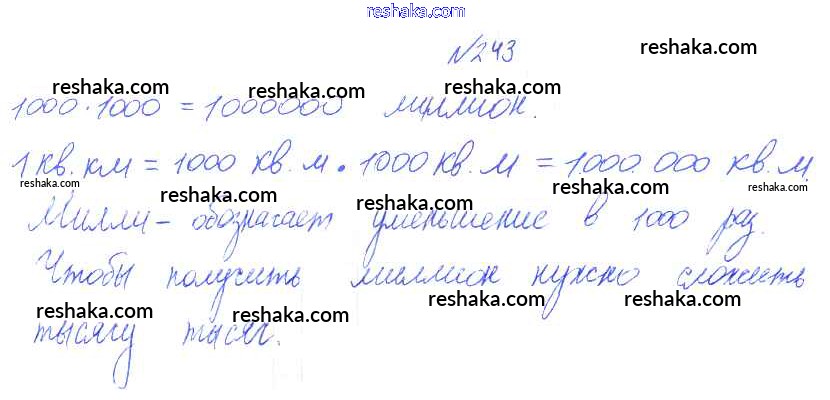 reshaka.com
№243
reshaka.com
reshaka.com reshaka.com reshaka.com
1000·1000 = 1000000 миллион.
1 кв. км = 1000 кв. м · 1000 кв. м = 1000.000 кв. м.
reshaka.com reshaka.com reshaka.com reshaka.com reshaka.com
Милли- обозначает уменьшение в 1000 раз.
Чтобы получить миллион нужно сложить
reshaka.com reshaka.com reshaka.com reshaka.com
тысячу тысяч.